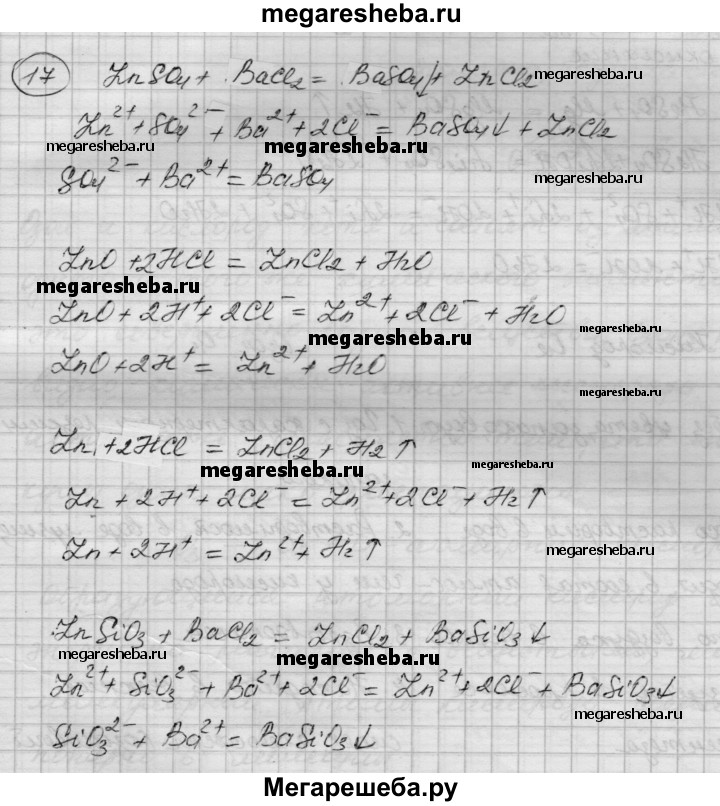 megaresheba.ru
17 ZnSO4 + BaCl2 = BaSO4↓ + ZnCl2 megaresheba.ru
Zn²⁺ + SO4²⁻ + Ba²⁺ + 2Cl⁻ = BaSO4↓ + ZnCl2
megaresheba.ru megaresheba.ru
SO4²⁻ + Ba²⁺ = BaSO4 megaresheba.ru
ZnO + 2HCl = ZnCl2 + H2O
megaresheba.ru megaresheba.ru
ZnO + 2H⁺ + 2Cl⁻ = Zn²⁺ + 2Cl⁻ + H2O
megaresheba.ru
ZnO + 2H⁺ = Zn²⁺ + H2O
megaresheba.ru
Zn + 2HCl = ZnCl2 + H2↑
megaresheba.ru megaresheba.ru
Zn + 2H⁺ + 2Cl⁻ = Zn²⁺ + 2Cl⁻ + H2↑
Zn + 2H⁺ = Zn²⁺ + H2↑ megaresheba.ru
ZnSiO3 + BaCl2 = ZnCl2 + BaSiO3↓
megaresheba.ru megaresheba.ru
Zn²⁺ + SiO3²⁻ + Ba²⁺ + 2Cl⁻ = Zn²⁺ + 2Cl⁻ + BaSiO3↓
megaresheba.ru
SiO3²⁻ + Ba²⁺ = BaSiO3↓
Мегарешеба.ру